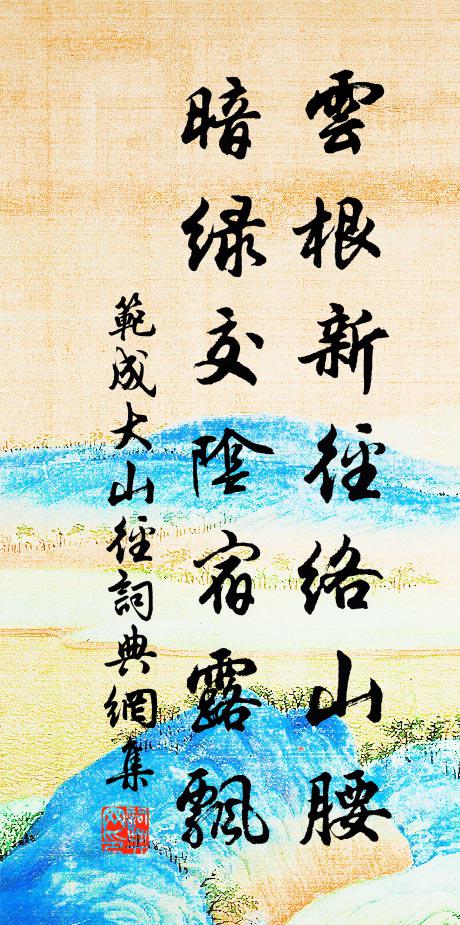 雲根新徑絡山腰
暗緑交陰宿露飄
範成大山徑詞典網集